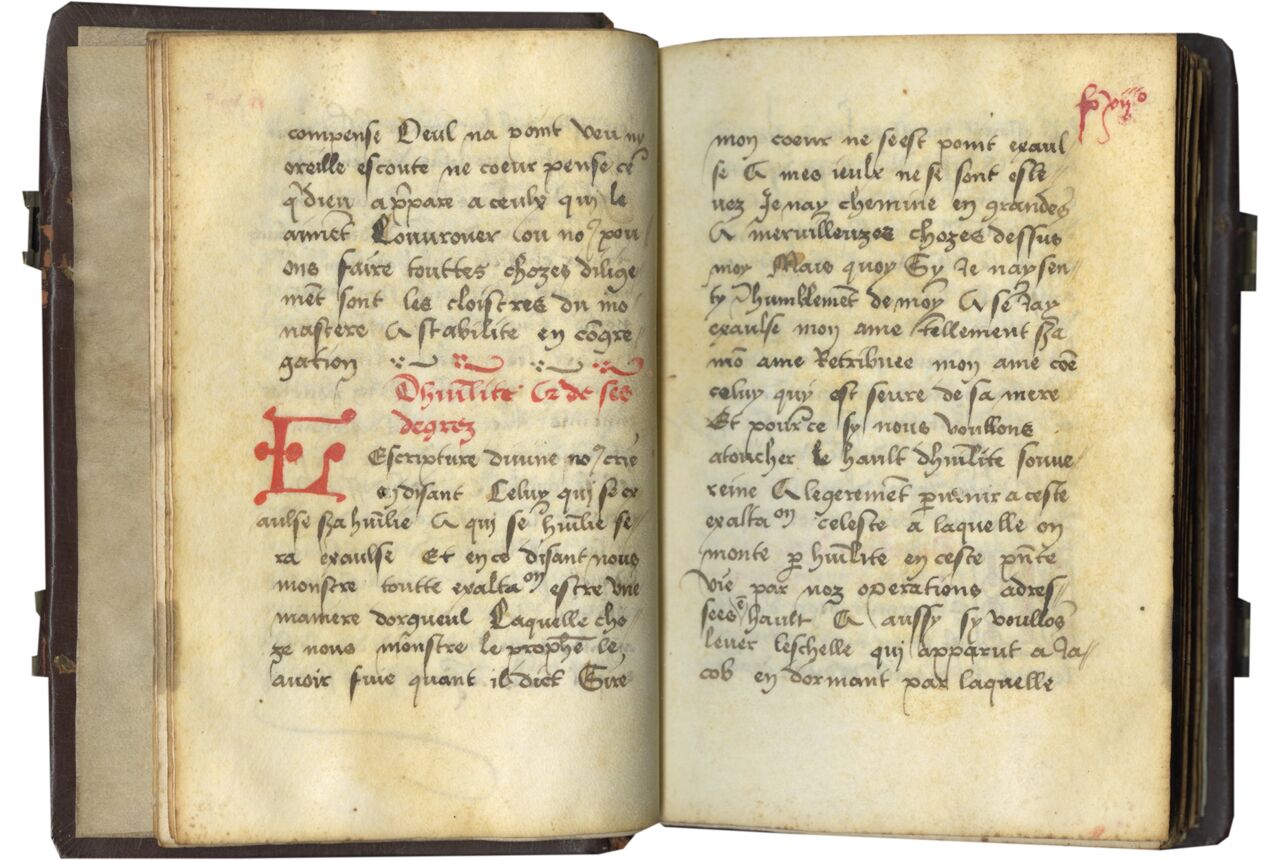 compense Oeul na point veu ny
oreille escoute ne coeur pense ce
q̃ dieu appare a ceulx qui le
aimēt Louurouer ou noꝰ pou
ons faire touttes chozes dilige
mēt sont les cloistres du mo
nastere & stabilite en cōgre
gation
Dhūilite & de ses
degrez
E Escripture diuine noꝰ crie
en disant Celuy qui se ex
aulse sera hūilie & qui se hūilie se
ra exaulse Et en ce disant nous
monstre toutte exaltaon estre vne
maniere dorgueul Laquelle cho
ze nous mōnstre le prophēe le
auoir fuie quant il dict Sire
fo xiijo
mon coeur ne seest point exaul
se & mes ieulx ne se sont esle
uez Je nay chemine en grandes
& meruilleuzes chozes dessus
moy Mais quoy Sy Je nay sen
ty humblemēt de moy & se Jay
exaulse mon ame tellement
mō ame Retribuee mon ame cōe
celuy qui est seure de sa mere
Et pource sy nous voullons
atoucher le hault dhūilite souue
reine & legeremēt puenir a ceste
exaltaon celeste a laquelle on
monte p hūilite en ceste pñte
vie par noz operations adres
sees hault & aussy sy voullōs
leuer leschelle qui apparut a Ja
cob en dormant par laquelle